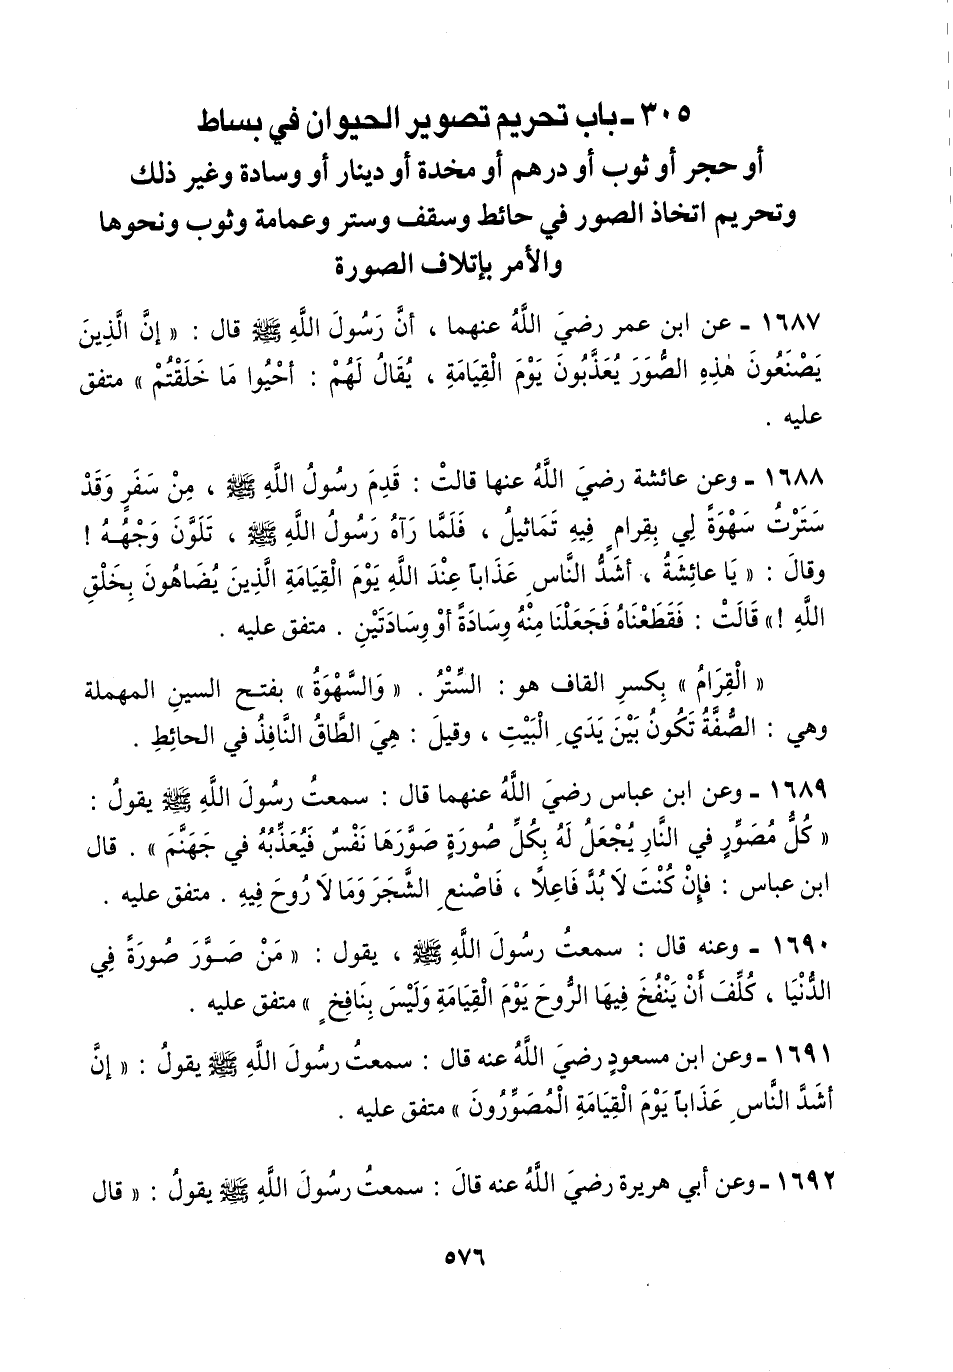 ٣٠٥ ـ باب تحريم تصوير الحيوان في بساط
أو حجر أو ثوب أو درهم أو مخدة أو دينار أو وسادة وغير ذلك
وتحريم اتخاذ الصور في حائط وسقف وستر وعمامة وثوب ونحوها
والأمر بإتلاف الصورة
١٦٨٧ ـ عن ابن عمر رضيَ اللَّهُ عنهما ، أنَّ رَسُولَ اللَّهِ ﷺ قال : « إنَّ الَّذِينَ
يَصْنَعُونَ هٰذِهِ الصُّوَرَ يُعَذَّبُونَ يَوْمَ الْقِيَامَةِ ، يُقَالُ لَهُمْ : أحْيُوا مَا خَلَقْتُمْ » متفق
عليه .
١٦٨٨ ـ وعن عائشة رضيَ اللَّهُ عنها قالتْ : قَدِمَ رسُولُ اللَّهِ ﷺ ، مِنْ سَفَرٍ وَقَدْ
سَتَرْتُ سَهْوَةً لِي بِقِرامٍ فِيهِ تَمَاثيلُ ، فَلَمَّا رَآهُ رَسُولُ اللَّهِ ﷺ ، تَلَوَّنَ وَجْهُهُ !
وقالَ : « يَا عائِشَةُ ، أشَدُّ النَّاسِ عَذَاباً عِنْدَ اللَّهِ يَوْمَ الْقِيَامَةِ الَّذِينَ يُضَاهُونَ بِخَلْقِ
اللَّهِ !» قَالَتْ : فَقَطَعْنَاهُ فَجَعَلْنَا مِنْهُ وِسَادَةً أوْ وِسَادَتَيْنِ . متفق عليه .
« الْقِرَامُ » بِكسرِ القاف هو : السِّتْرُ . « وَالسَّهْوَةُ » بفتح السينِ المهملة
وهي : الصُّفَّةُ تَكُونُ بَيْنَ يَدَيِ الْبَيْتِ ، وقيلَ : هِيَ الطَّاقُ النَّافِذُ في الحائِطِ .
١٦٨٩ ـ وعن ابن عباس رضيَ اللَّهُ عنهما قال : سمعتُ رسُولَ اللَّهِ ﷺ يقولُ :
« كُلُّ مُصَوِّرٍ في النَّارِ يُجْعَلُ لَهُ بِكُلِّ صُورَةٍ صَوَّرَهَا نَفْسٌ فَيُعَذِّبُهُ في جَهَنَّمَ » . قال
ابن عباس : فإنْ كُنْتَ لا بُدَّ فَاعِلاً ، فَاصْنعِ الشَّجَرَ وَمَا لا رُوحَ فِيهِ . متفق عليه .
١٦٩٠ ـ وعنه قال : سمعتُ رسُولَ اللَّهِ ﷺ ، يقول : « مَنْ صَوَّرَ صُورَةً فِي
الدُّنْيَا ، كُلِّفَ أَنْ يَنْفُخَ فِيهَا الرُّوحَ يَوْمَ الْقِيَامَةِ وَلَيْسَ بِنَافِخٍ » متفق عليه .
١٦٩١ ـ وعن ابن مسعودٍ رضيَ اللَّهُ عنه قال : سمعتُ رسُولَ اللَّهِ ﷺ يقولُ : « إنَّ
أشَدَّ النَّاسِ عَذَاباً يَوْمَ الْقِيَامَةِ الْمُصَوِّرُونَ » متفق عليه .
١٦٩٢ ـ وعن أبي هريرة رضيَ اللَّهُ عنه قالَ : سمعتُ رسُولَ اللَّهِ ﷺ يقولُ : « قال
٥٧٦